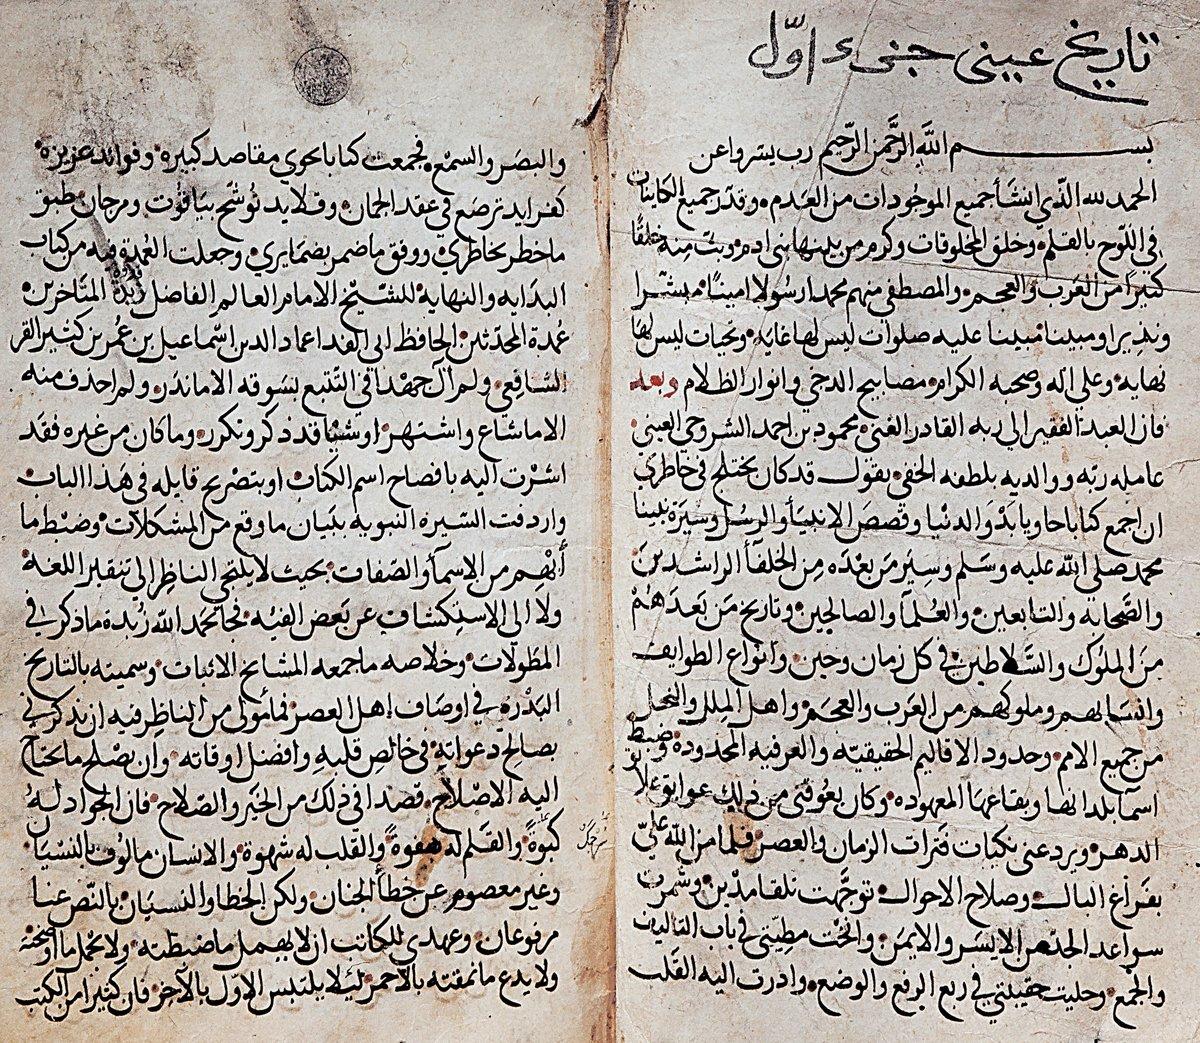 تاريخ عيني جزء اول
بسم الله الرحمن الرحيم رب يسر واعن
الحمد لله الذي انشأ جميع الموجودات من العدم وقدر جميع الكاينات
في اللوح بالقلم وخلق المخلوقات وكرم من بينها بني ادم وبث منه خلقا
كثيرا من العرب والعجم والمصطفى منهم محمدا رسولا امينا مبشرا
ونذيرا ومبينا مبينا عليه صلوات ليس لها غاية وتحيات ليس لها
نهاية وعلى اله وصحبه الكرام مصابيح الدجى وانوار الظلام وبعد
فان العبد الفقير الى ربه القادر الغني محمود بن احمد السروجي العيني
عامله ربه ووالديه بلطفه الخفي يقول قد كان يختلج في خاطري
ان اجمع كتابا حاويا بدو الدنيا وقصص الانبيا والرسل وسيرة نبينا
محمد صلى الله عليه وسلم وسير من بعده من الخلفا الراشدين
والصحابه والتابعين والعلما والصالحين وتاريخ من بعدهم
من الملوك والسلاطين في كل زمان وحين وانواع الطوايف
وانسابهم وملوكهم من العرب والعجم واهل الملل والنحل
من جميع الامم وحدود الاقاليم الحقيقيته والعرفيه المحدوده وضبط
اسما بلدانها وبقاعها المعهوده وكان يعوقني من ذلك عوايق
الدهر ويردعني نكبات فترات الزمان والعصر فلما من الله علي
بفراغ البال وصلاح الاحوال توجهت تلقا مدين وشمرت
سواعد الجد من الايسر والايمن وانخت مطيتي في باب التاليف
والجمع وحليت حقيبتي في ربع الرفع والوضع وادرت اليه القلب
والبصر والسمع فجمعت كتابا يحوي مقاصد كبيرة وفوايد عزيزة
كفرايد ترصع في عقد الجمان وقلايد توشح بياقوت ومرجان طبق
ما خطر بخاطري ووفق ما ضمر بضمايري وجعلت العمدة فيه من كتاب
البدايه والنهاية للشيخ الامام العالم الفاضل زبدة المتاخرين
عمدة المحدثين الحافظ ابي الفدا عماد الدين اسماعيل بن عمر بن كثير القر
الشافعي ولم آل جهدا في التتبع بسوقه الا ماندر ولم احذف منه
الا ما شاع واشتهر او شيا قد ذكر وتكرر وما كان من غيره فقد
اشرت اليه بافصاح اسم الكتاب او بتصريح قايله في هذا الباب
واردفت السيره النبويه ببيان ما وقع من المشكلات وضبط ما
أبهم من الاسما والصفات بحيث لا يلتجي الناظر الى تنقير اللغه
ولا الى الاستكشاف عن بعض الفيه فجا بحمد الله زبدة ما ذكر في
المطولات وخلاصه ما جمعه المشايخ الاثبات وسميته بالتاريخ
البدري في اوصاف اهل العصر فمأمولي من الناظر فيه ان يذكرني
بصالح دعواته في خالص قلبه وافضل اوقاته وان يصلح ما يحتاج
اليه الاصلاح قصدا في ذلك من الخير والصلاح فان الجواد له
كبوة والقلم له هفوة والقلب له شهوة والانسان مالوف بالنسيان
وغير معصوم عن خطأ الجنان ولكن الخطا والنسيان بالنص عنا
مرفوعان وعهدي للكاتب ان لا يهمل ما ضبطته ولا يخمل ما اوضحته
ولا يدع ما نمقته بالاحمر ليلا يلتبس الاول بالآخر فان كثيرا من الكتب